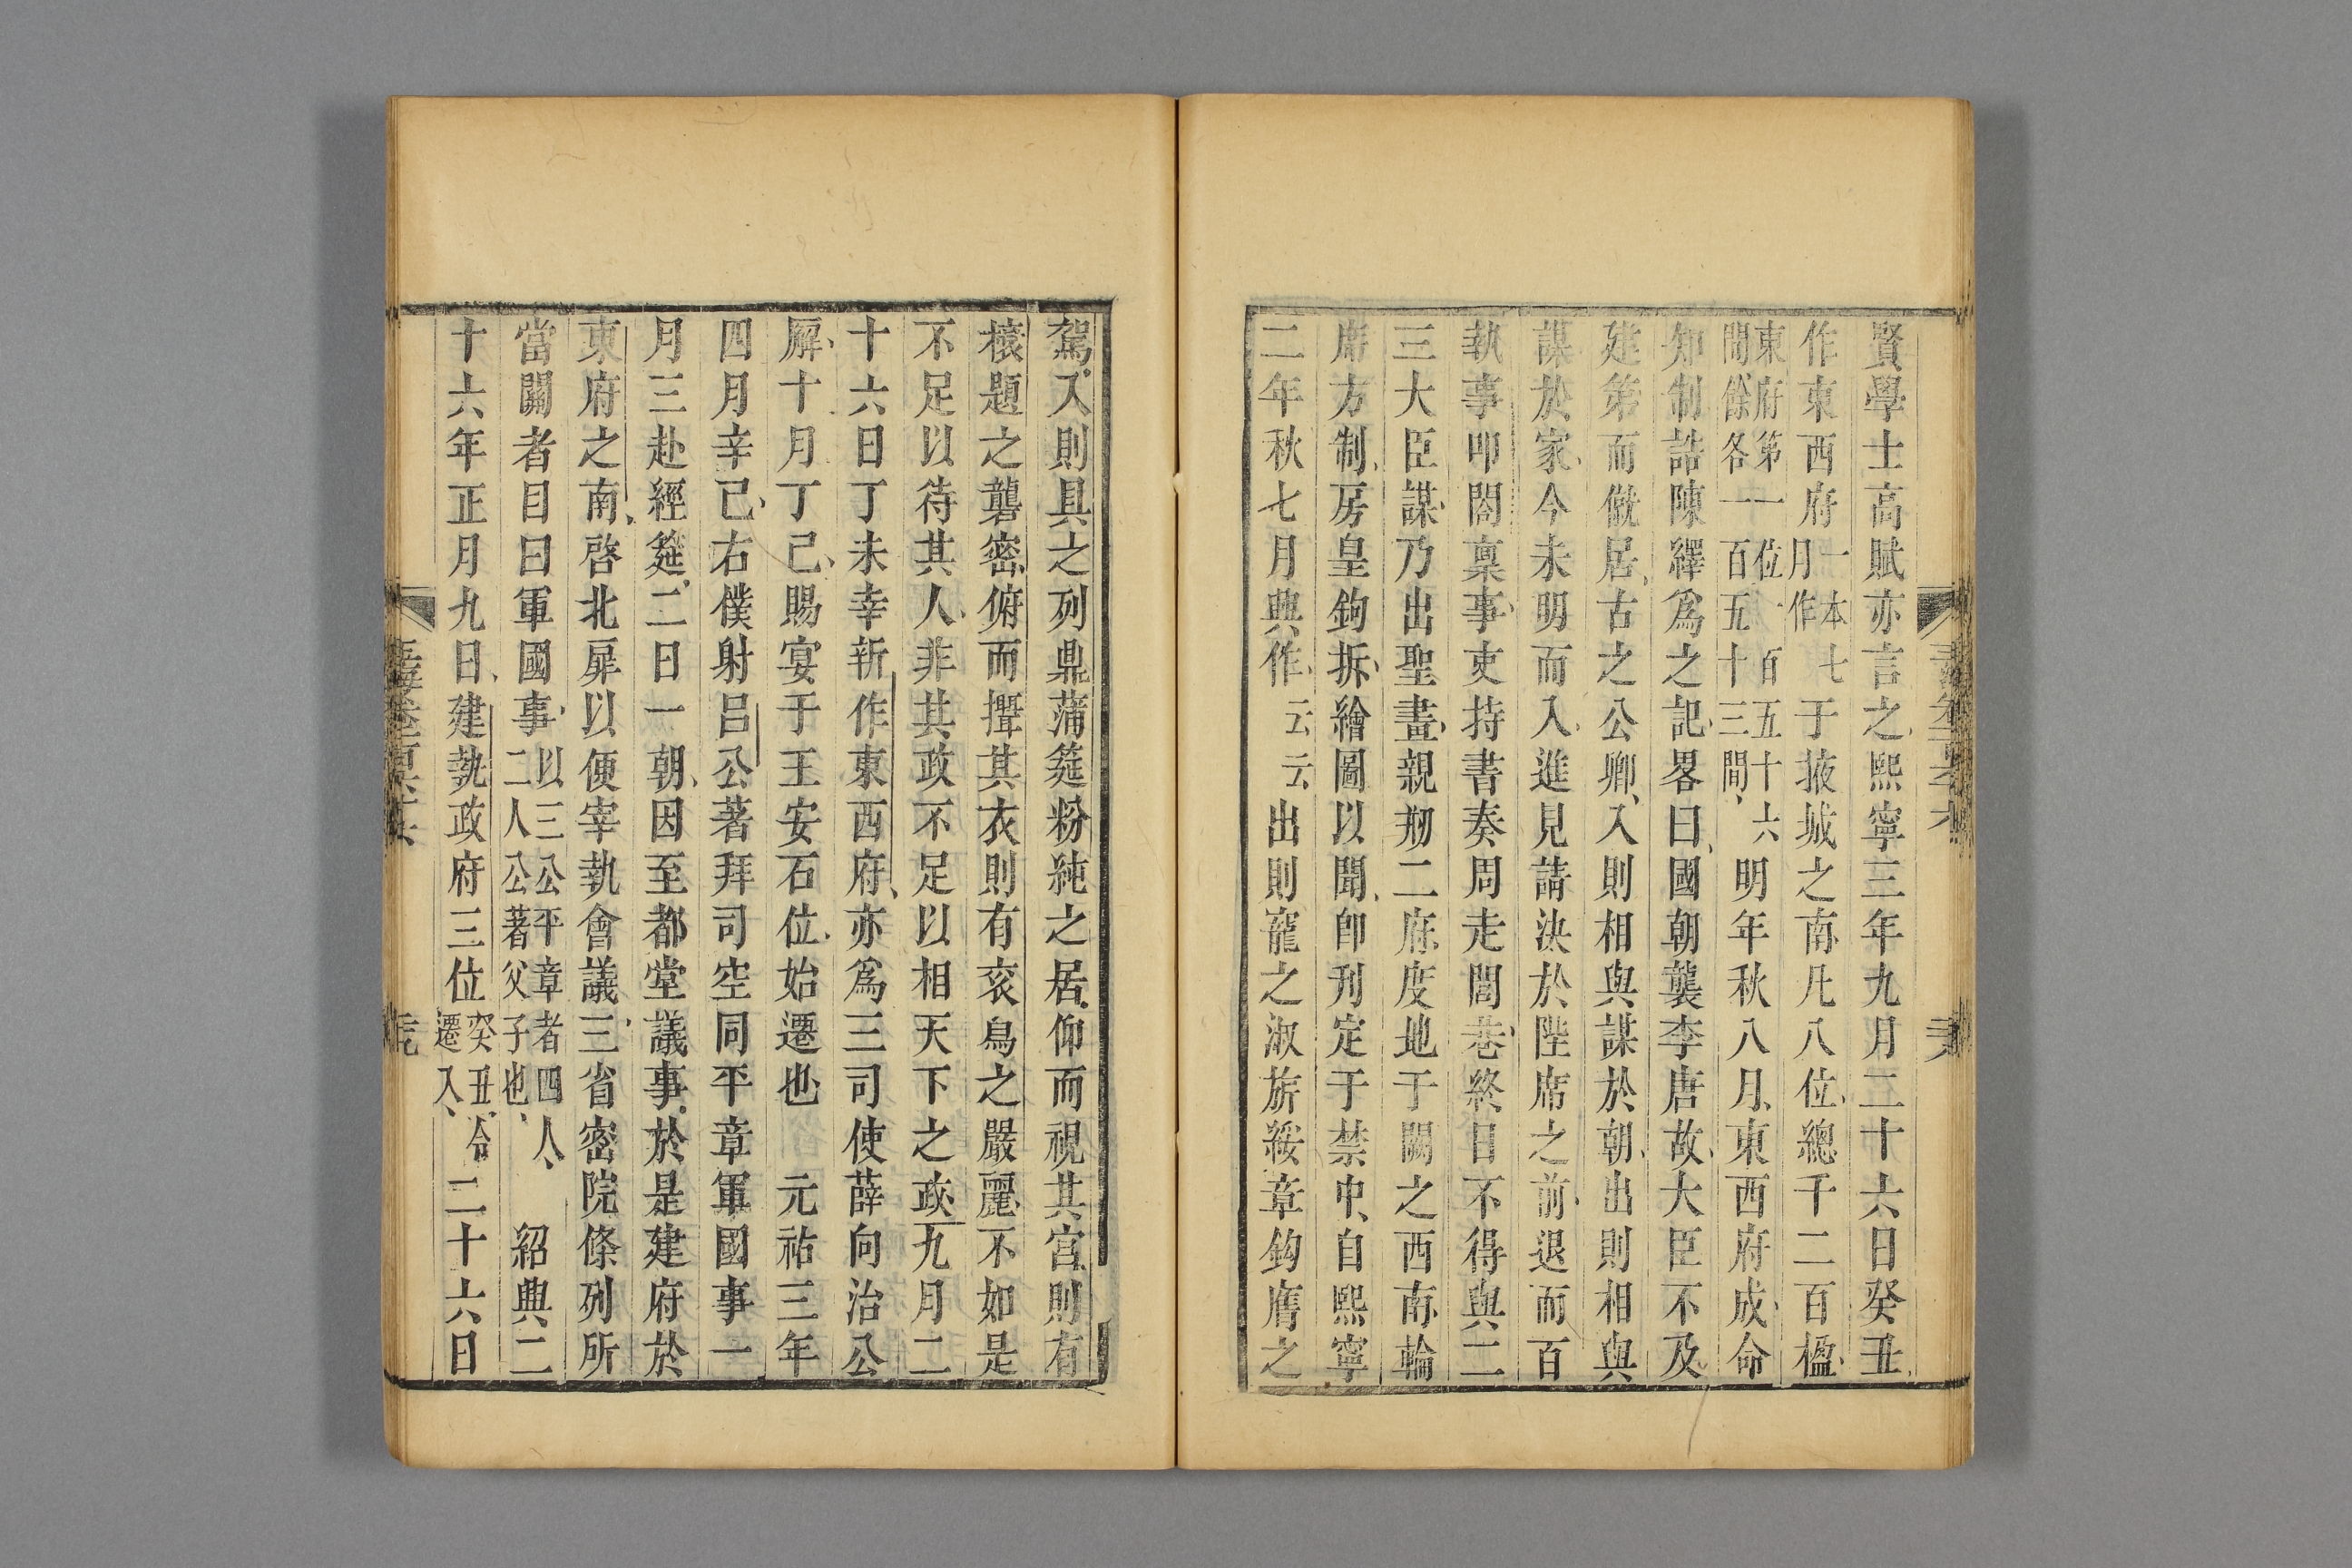 賢學士高賦亦言之熙寧三年九月二十六日癸丑
作東西府一本七月作于掖城之南凡八位總千二百楹
東府第一位一百五十六間餘各一百五十三間明年秋八月東西府成命
知制誥陳繹爲之記畧曰國朝襲李唐故大臣不及
建第而僦居古之公卿入則相與謀於朝出則相與
謀於家今未明而入進見請決於陛席之前退而百
執事叩閤稟事吏持書奏周走閭巷終日不得與二
三大臣謀乃出聖畫親剏二府度地于闕之西南輪
席方制房皇鉤拆繪圖以聞卽刋定于禁中自熙寧
二年秋七月典作云云出則寵之淑旂綏章鈎膺之
駕入則具之列鼎蒲筵粉純之居仰而視其宮則有
榱題之礱密俯而攝其衣則有衮舄之嚴麗不如是
不足以待其人非其政不足以相天下之政九月二
十六日丁未幸新作東西府亦爲三司使薛向治公
廨十月丁己賜宴于王安石位始遷也元祐三年
四月辛己右僕射呂公著拜司空同平章軍國事一
月三赴經筵二日一朝因至都堂議事於是建府於
東府之南啓北扉以便宰執會議三省密院條列所
當關者目曰軍國事以三公平章者四人二人公著父子也紹典二
十六年正月九日建執政府三位癸丑令遷入二十六日